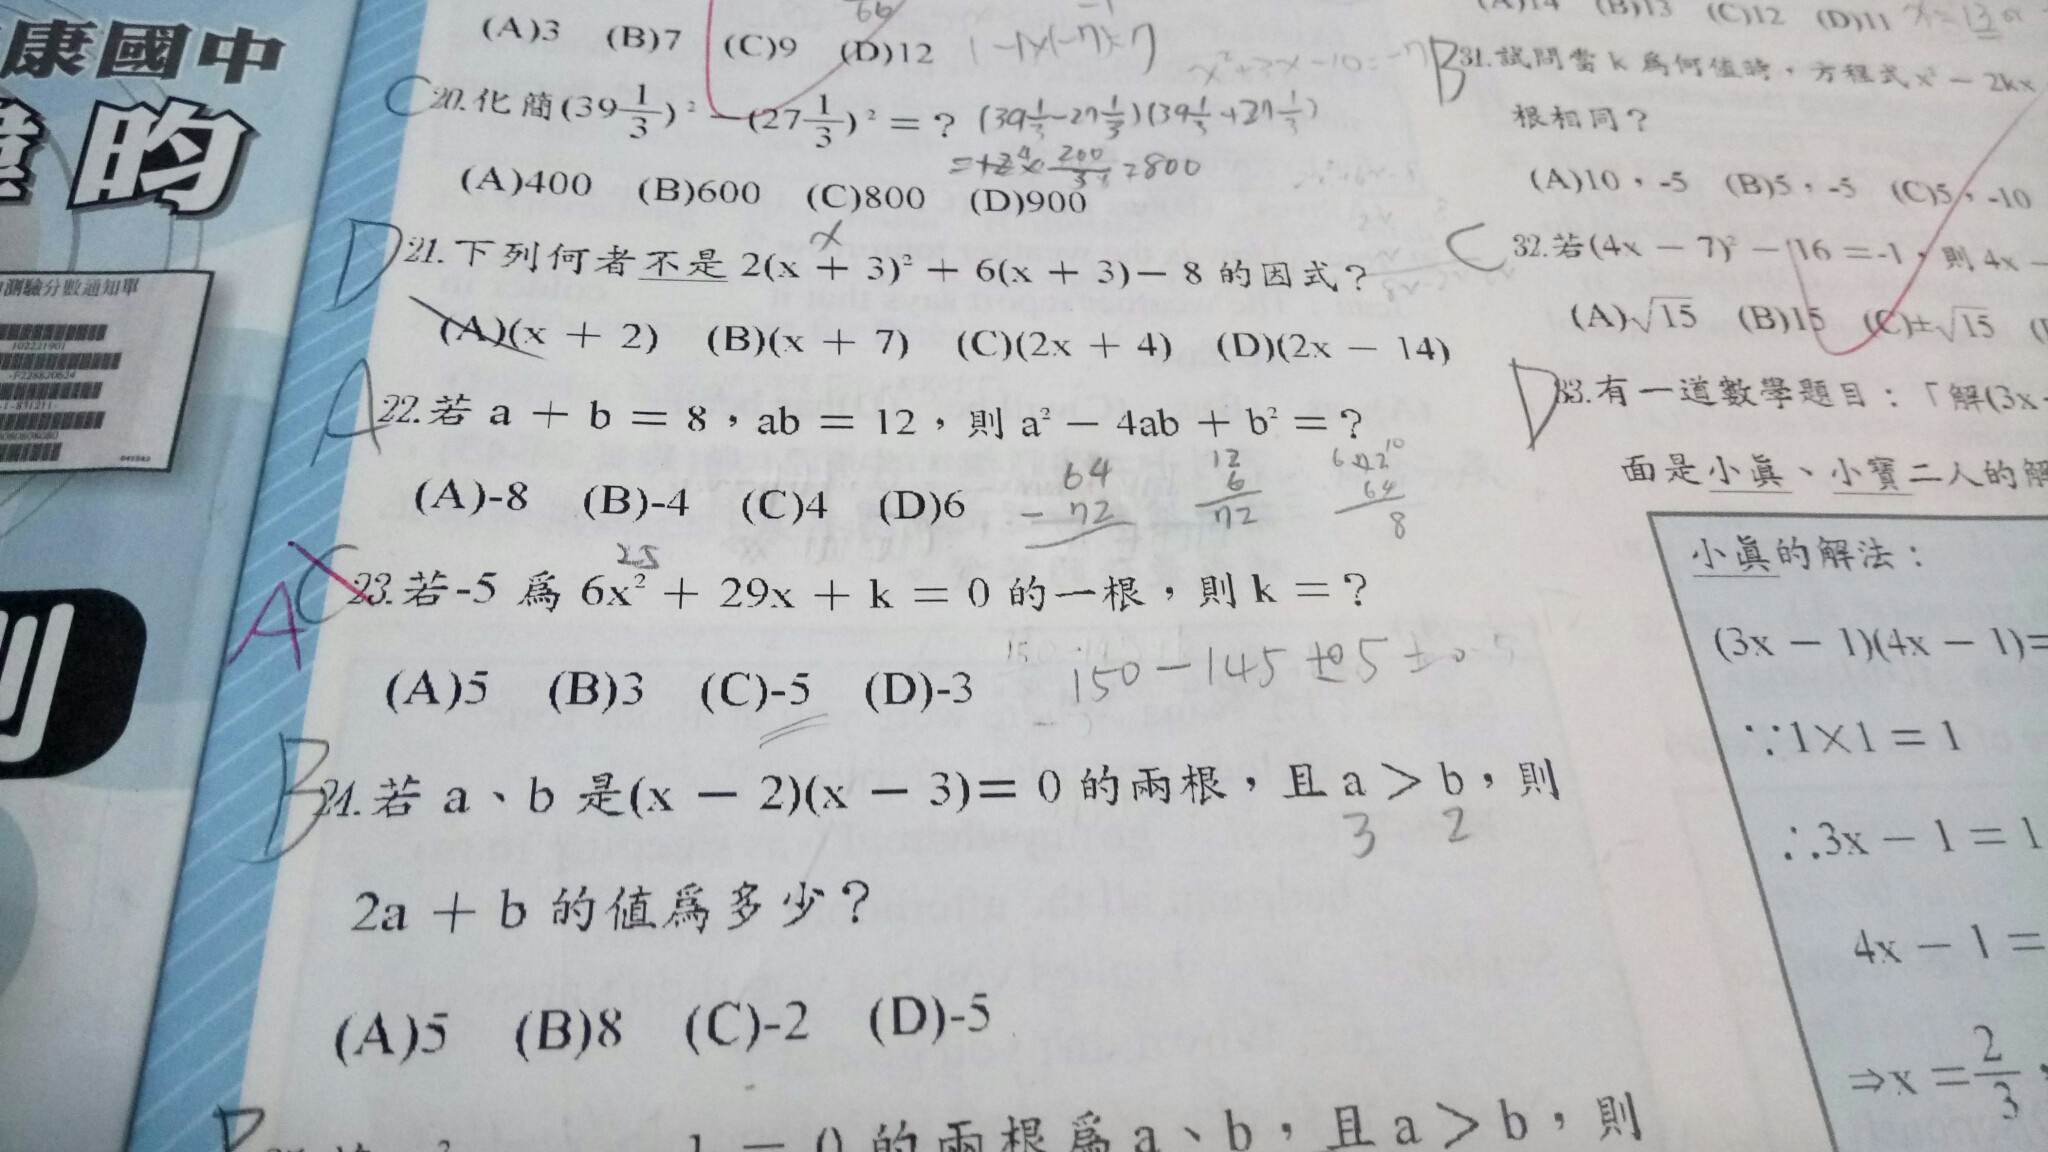 康國中
昀
測驗分數通知單
(A)3 (B)7 (C)9 (D)12
1-1×(-7)=7
C 20.化簡(39 1/3)² －(27 1/3)² = ? (39 1/3 - 27 1/3)(39 1/3 + 27 1/3)
(A)400 (B)600 (C)800 (D)900
D 21.下列何者不是 2(x + 3)² + 6(x + 3)－8 的因式？
(A)(x + 2) (B)(x + 7) (C)(2x + 4) (D)(2x － 14)
A 22.若 a + b = 8，ab = 12，則 a² － 4ab + b² = ？
(A)-8 (B)-4 (C)4 (D)6
64
- 72
12
6
72
64
8
25
C A 23.若-5 為 6x² + 29x + k = 0 的一根，則 k = ？
(A)5 (B)3 (C)-5 (D)-3
150-145
B 24.若 a、b 是(x － 2)(x － 3)= 0 的兩根，且 a > b，則
3 2
2a + b 的值為多少？
(A)5 (B)8 (C)-2 (D)-5
= 0 的兩根為 a、b，且 a > b，則
(A)14 (B)13 (C)12 (D)11
B 31.試問當 k 為何值時，方程式 x² － 2kx
根相同？
(A)10，-5 (B)5，-5 (C)5，-10
C 32.若(4x － 7)² － 16 =-1，則 4x －
(A)√15 (B)15 (C)±√15
D 33.有一道數學題目：「解(3x
面是小真、小寶二人的解
小真的解法：
(3x － 1)(4x － 1)=
∵1×1 = 1
∴3x － 1 = 1
4x － 1 =
⇒x = 2/3，